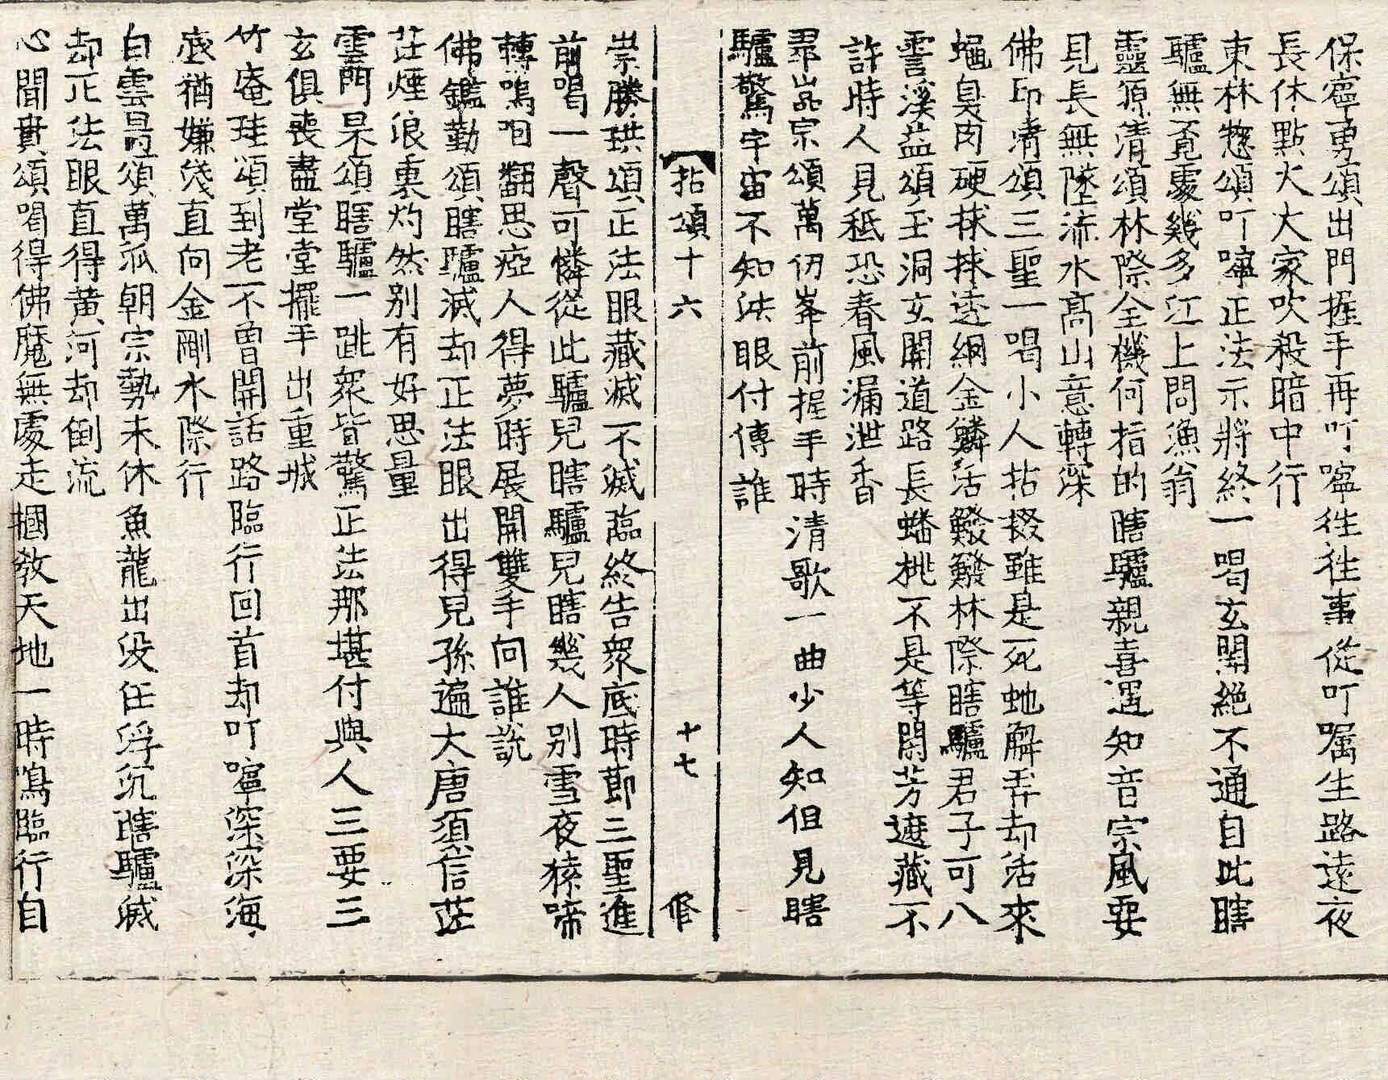 保寧勇頌出門握手再叮嚀徃徃事從叮嘱生路遠夜
長休點火大家吹殺暗中行
東林惣頌叮嚀正法示將終一喝玄關絶不通自此瞎
驢無覔處幾多江上問漁翁
靈源清頌林際全機何指的瞎驢親喜遇知音宗風要
見長無墜流水高山意轉深
佛印清頌三聖一喝小人拈掇雖是死虵解弄却活來
蝇臭肉硬捄捄透網金鱗活鱍鱍林際瞎驢君子可八
霅溪益頌玉洞玄關道路長蟠桃不是等閑芳遮藏不
許時人見秖恐春風漏泄香
宗頌萬仞峯前握手時清歌一曲少人知但見瞎
驢驚宇宙不知法眼付傳誰
拈頌十六 十七 修
崇勝珙頌正法眼藏滅不滅臨終告衆底時莭三聖進
前喝一聲可憐從此驢兒瞎驢兒瞎幾人別雪夜猿啼
轉嗚咽翻思瘂人得夢時展開雙手向誰説
佛鑑勤頌瞎驢滅却正法眼出得兒孫遍大唐須信茫
茫煙浪裏灼然别有好思量
雲門杲頌瞎驢一跳衆皆驚正法那堪付與人三要三
玄俱喪盡堂堂擺手出重城
竹庵珪頌到老不曽開話路臨行回首却叮嚀深深海
底猶嫌淺直向金剛水際行
白雲昺頌萬派朝宗勢未休魚龍出没任浮沉瞎驢滅
却正法眼直得黄河却倒流
心聞賁頌喝得佛魔無處走摑教天地一時鳴臨行自